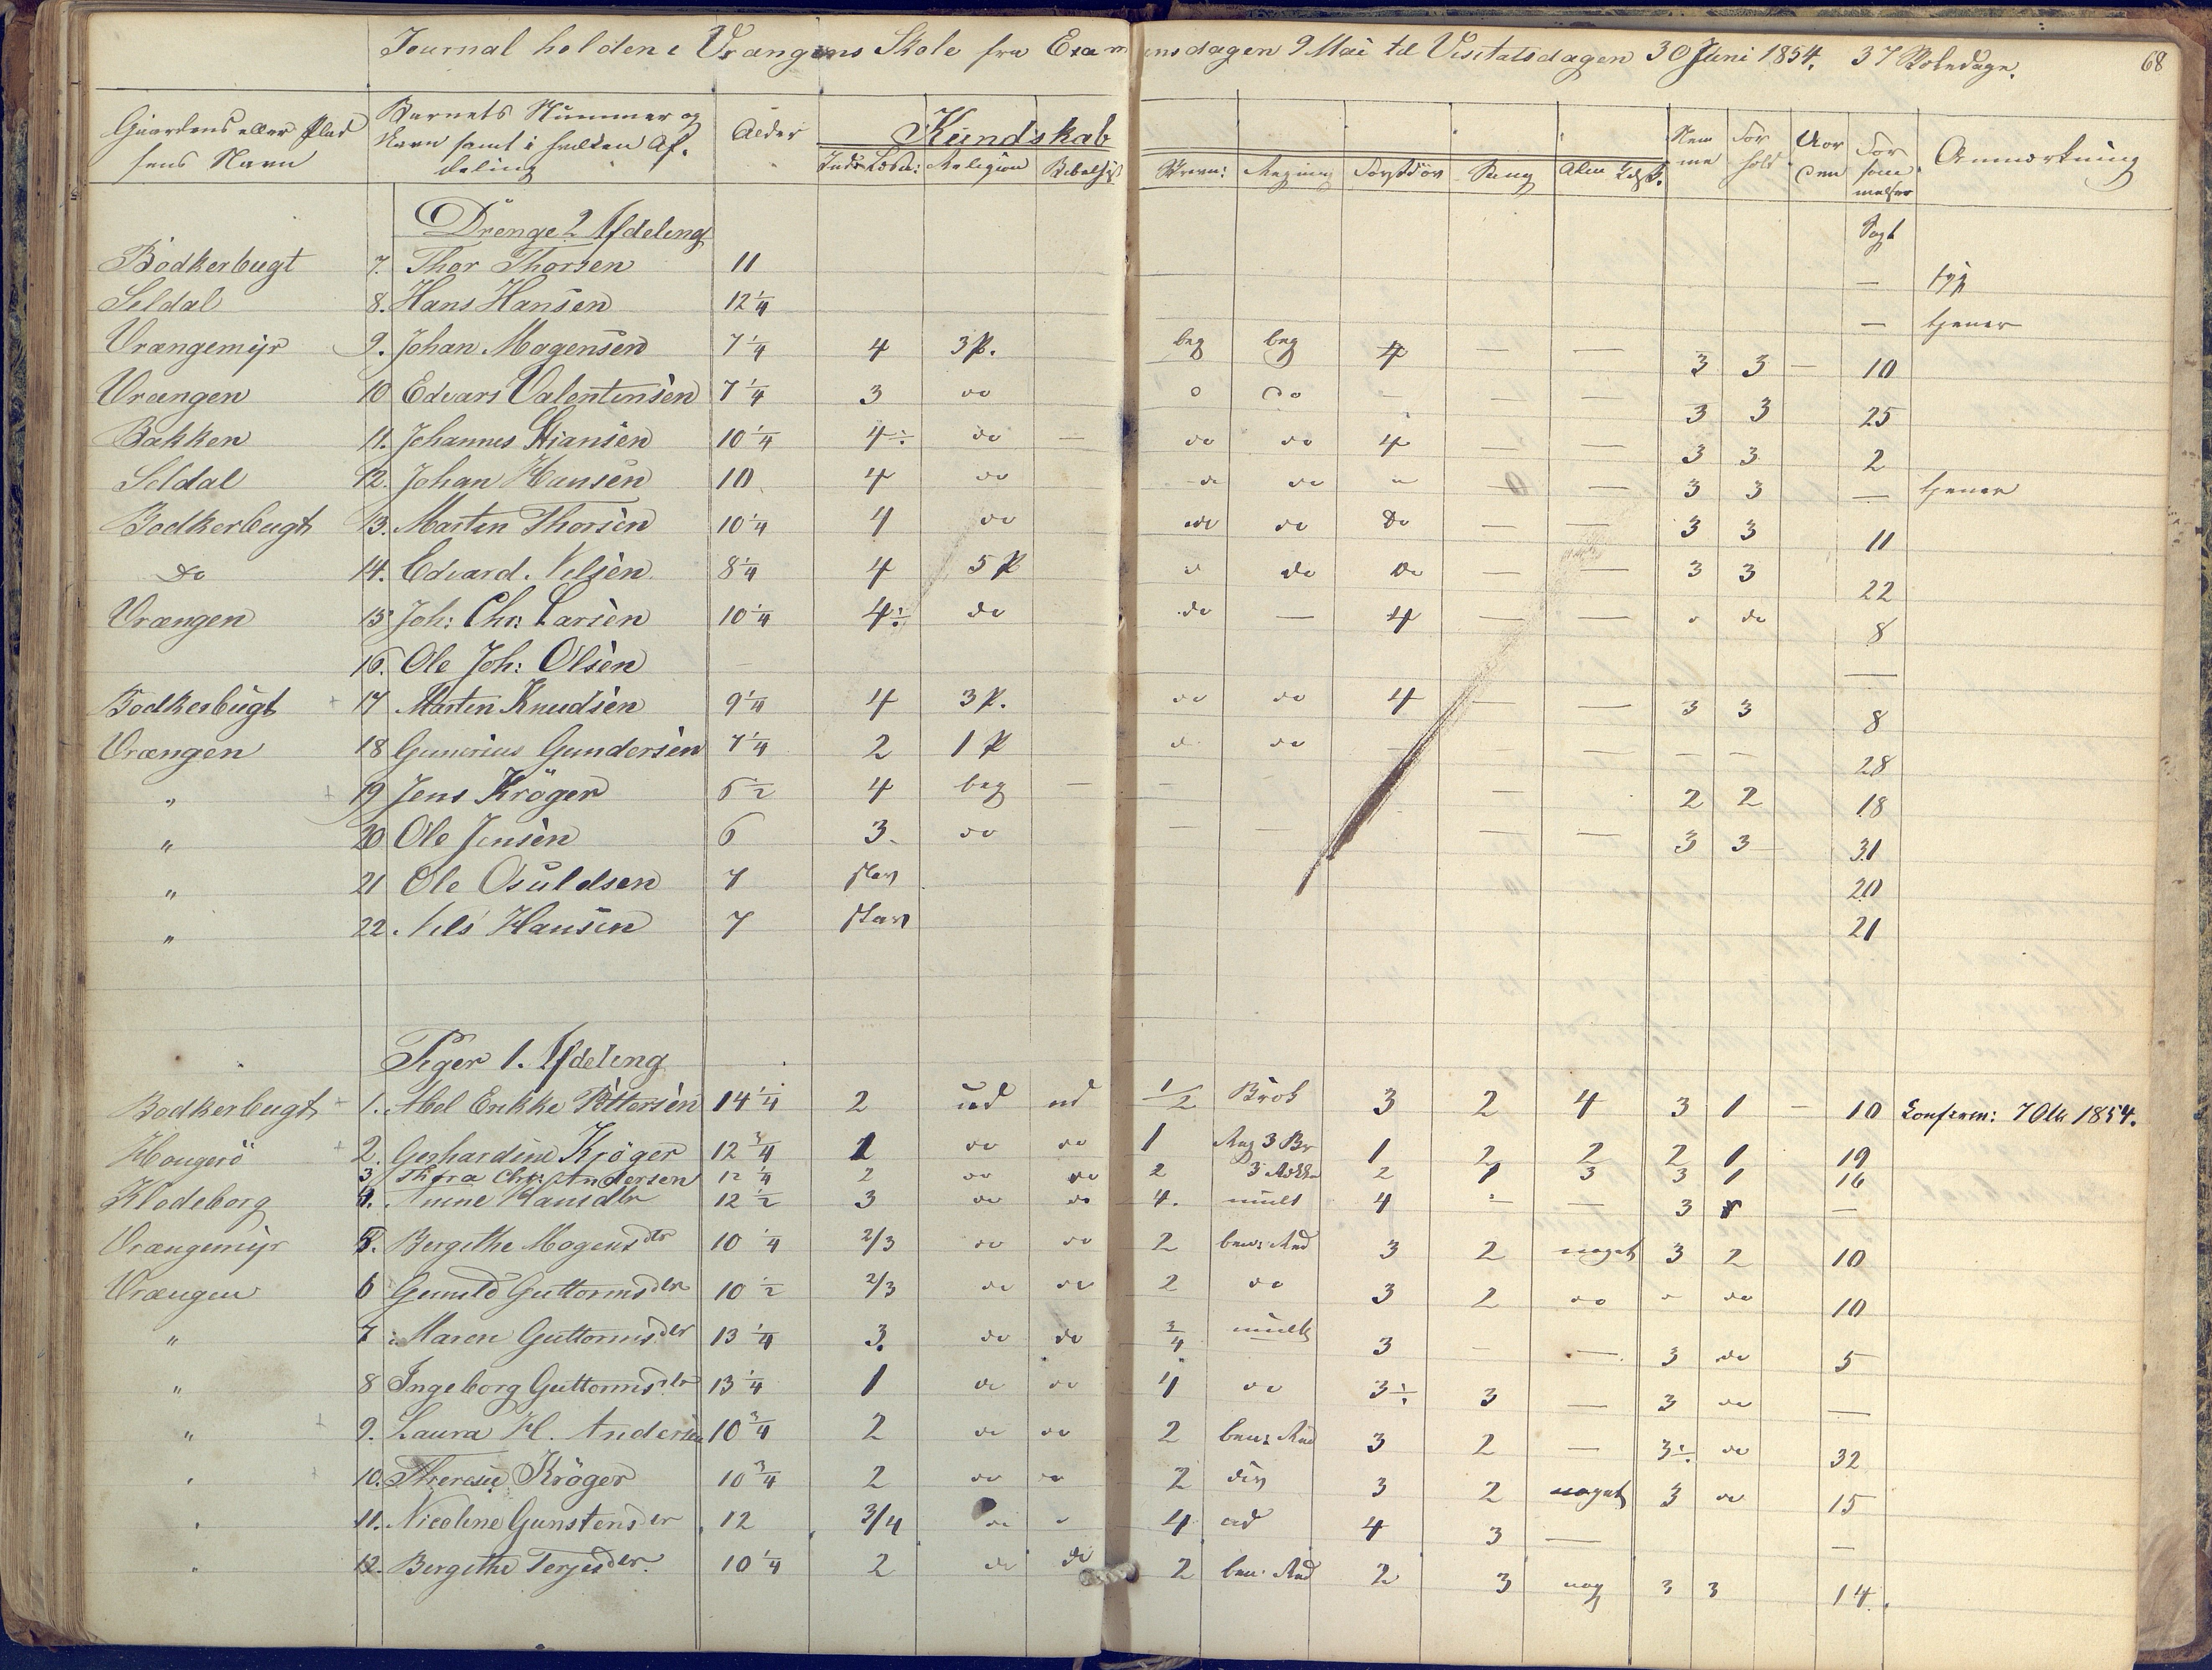 Journal holden i Vrængens Skole fra Examensdagen 9 Mai til Visitatsdagen 30 Juni 1854. 37 Skoledage. 68
Gaardens eller Pladsens Navn | Barnets Nummer og Navn samt i hvilken Afdeling | Alder | Kundskab | Nemme | Forhold | Orden | Forsømmelser | Anmærkning
Religion | Bibelhist | Skrivn: | Regning | Sang
Drenge 2 Afdeling | Sogt
Bödkerbugt 7. Thor Thorsen 11 —
Seldal 8. Hans Hansen 12 1/4 — tjener
Vrængemyr 9. Johan Mogensen 7 1/4 4 3 P. beg beg 4 — — 3 3 — 10
Vrængen 10 Edvars Valentinsen 7 1/4 3 do o do — — — 3 3 25
Bakken 11. Johannes Stiansen 10 1/4 4÷ do — do do 4 — — 3 3 2
Seldal 12. Johan Hansen 10 4 do do do — — 3 3 — tjener
Bödkerbugt 13. Martin Thorsen 10 1/4 4 do do do Do — — 3 3 11
Do 14. Edvard Nilsen 8 1/4 4 5 P d do Do — — 3 3 22
Vrængen 15 Joh: Chr: Larsen 10 1/4 4÷ do do — 4 — — do 8
16. Ole Joh: Olsen — —
Bödkerbugt 17 Martin Knudsen 9 1/4 4 3 P. do do 4 — — 3 3 8
Vrængen 18 Gunerius Gundersen 7 1/4 2 1 P d do — — — — 28
" 19 Jens Kröger 6 1/2 4 beg — — — 2 2 18
" 20 Ole Jensen 6 3 do — — — — 3 3 31
" 21 Ole Osuldsen 7 stav 20
" 22. Nils Hansen 7 stav 21
Piger 1. Afdeling
Bodkerbugt 1. Abel Erikke Pettersen 14 1/4 2 ud ud 1/2 Brök 3 2 4 3 1 — 10 Confirm: 7 Okt 1854.
Hougerö 2. Gerhardine Kröger 12 3/4 1 do do 1 Reg 3 Br 1 2 2 2 1 19
3 Thora Chr: Andersen 12 1/4 2 do do 2 2 1 3 3 1 16
Klodeborg 4. Anne Hansdtr 12 1/2 3 do do 4. mult 4 — — 3 —
Vrængemyr 5. Bergithe Mogensdtr 10 1/4 2/3 do do 2 ben: Red 3 2 noget 3 2 10
Vrængen 6 Gunild Guttormsdtr 10 1/2 2/3 do do 2 do 3 2 do do 10
" 7 Maren Guttormsdtr 13 1/4 3. do do 3/4 mult 3 — — 3 do 5
" 8 Ingeborg Guttormsdtr 13 1/4 1 do do 4 do 3÷ 3 — 3 do —
" 9. Laura H. Andersen 10 3/4 2 do do 2 ben: Red 3 2 — 3÷ do 32
" 10. Therese Kröger 10 3/4 2 do do 2 div 3 2 noget 3 do 15
" 11. Nicoline Gunstensdtr 12 3/4 do 4 ad 4 3 — —
" 12. Bergithe Terjesdtr. 10 1/4 2 do do 2 ben: Red 2 3 nog 3 3 14.